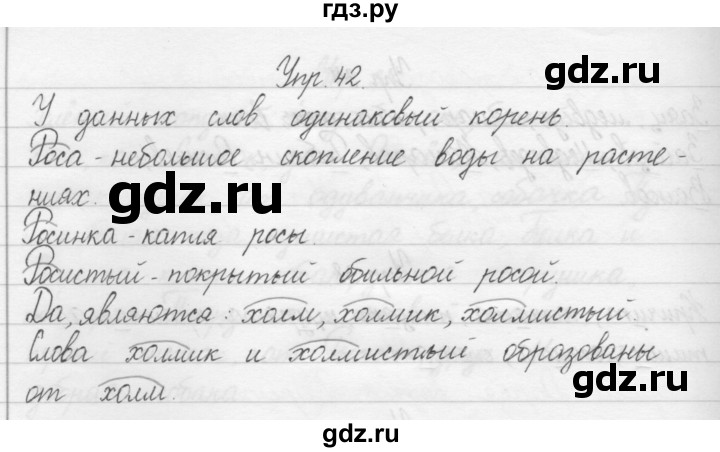 гдз.ру
Упр. 42.
gdz.ru
У данных слов одинаковый корень
Роса - небольшое скопление воды на расте-
ниях.
gdz.ru
Росинка - капля росы
Росистый - покрытый боильной росой.
Да, являются: холм, холмик, холмистый
Слова холмик и холмистый образованы
gdz.ru
от холм.
gdz.ru